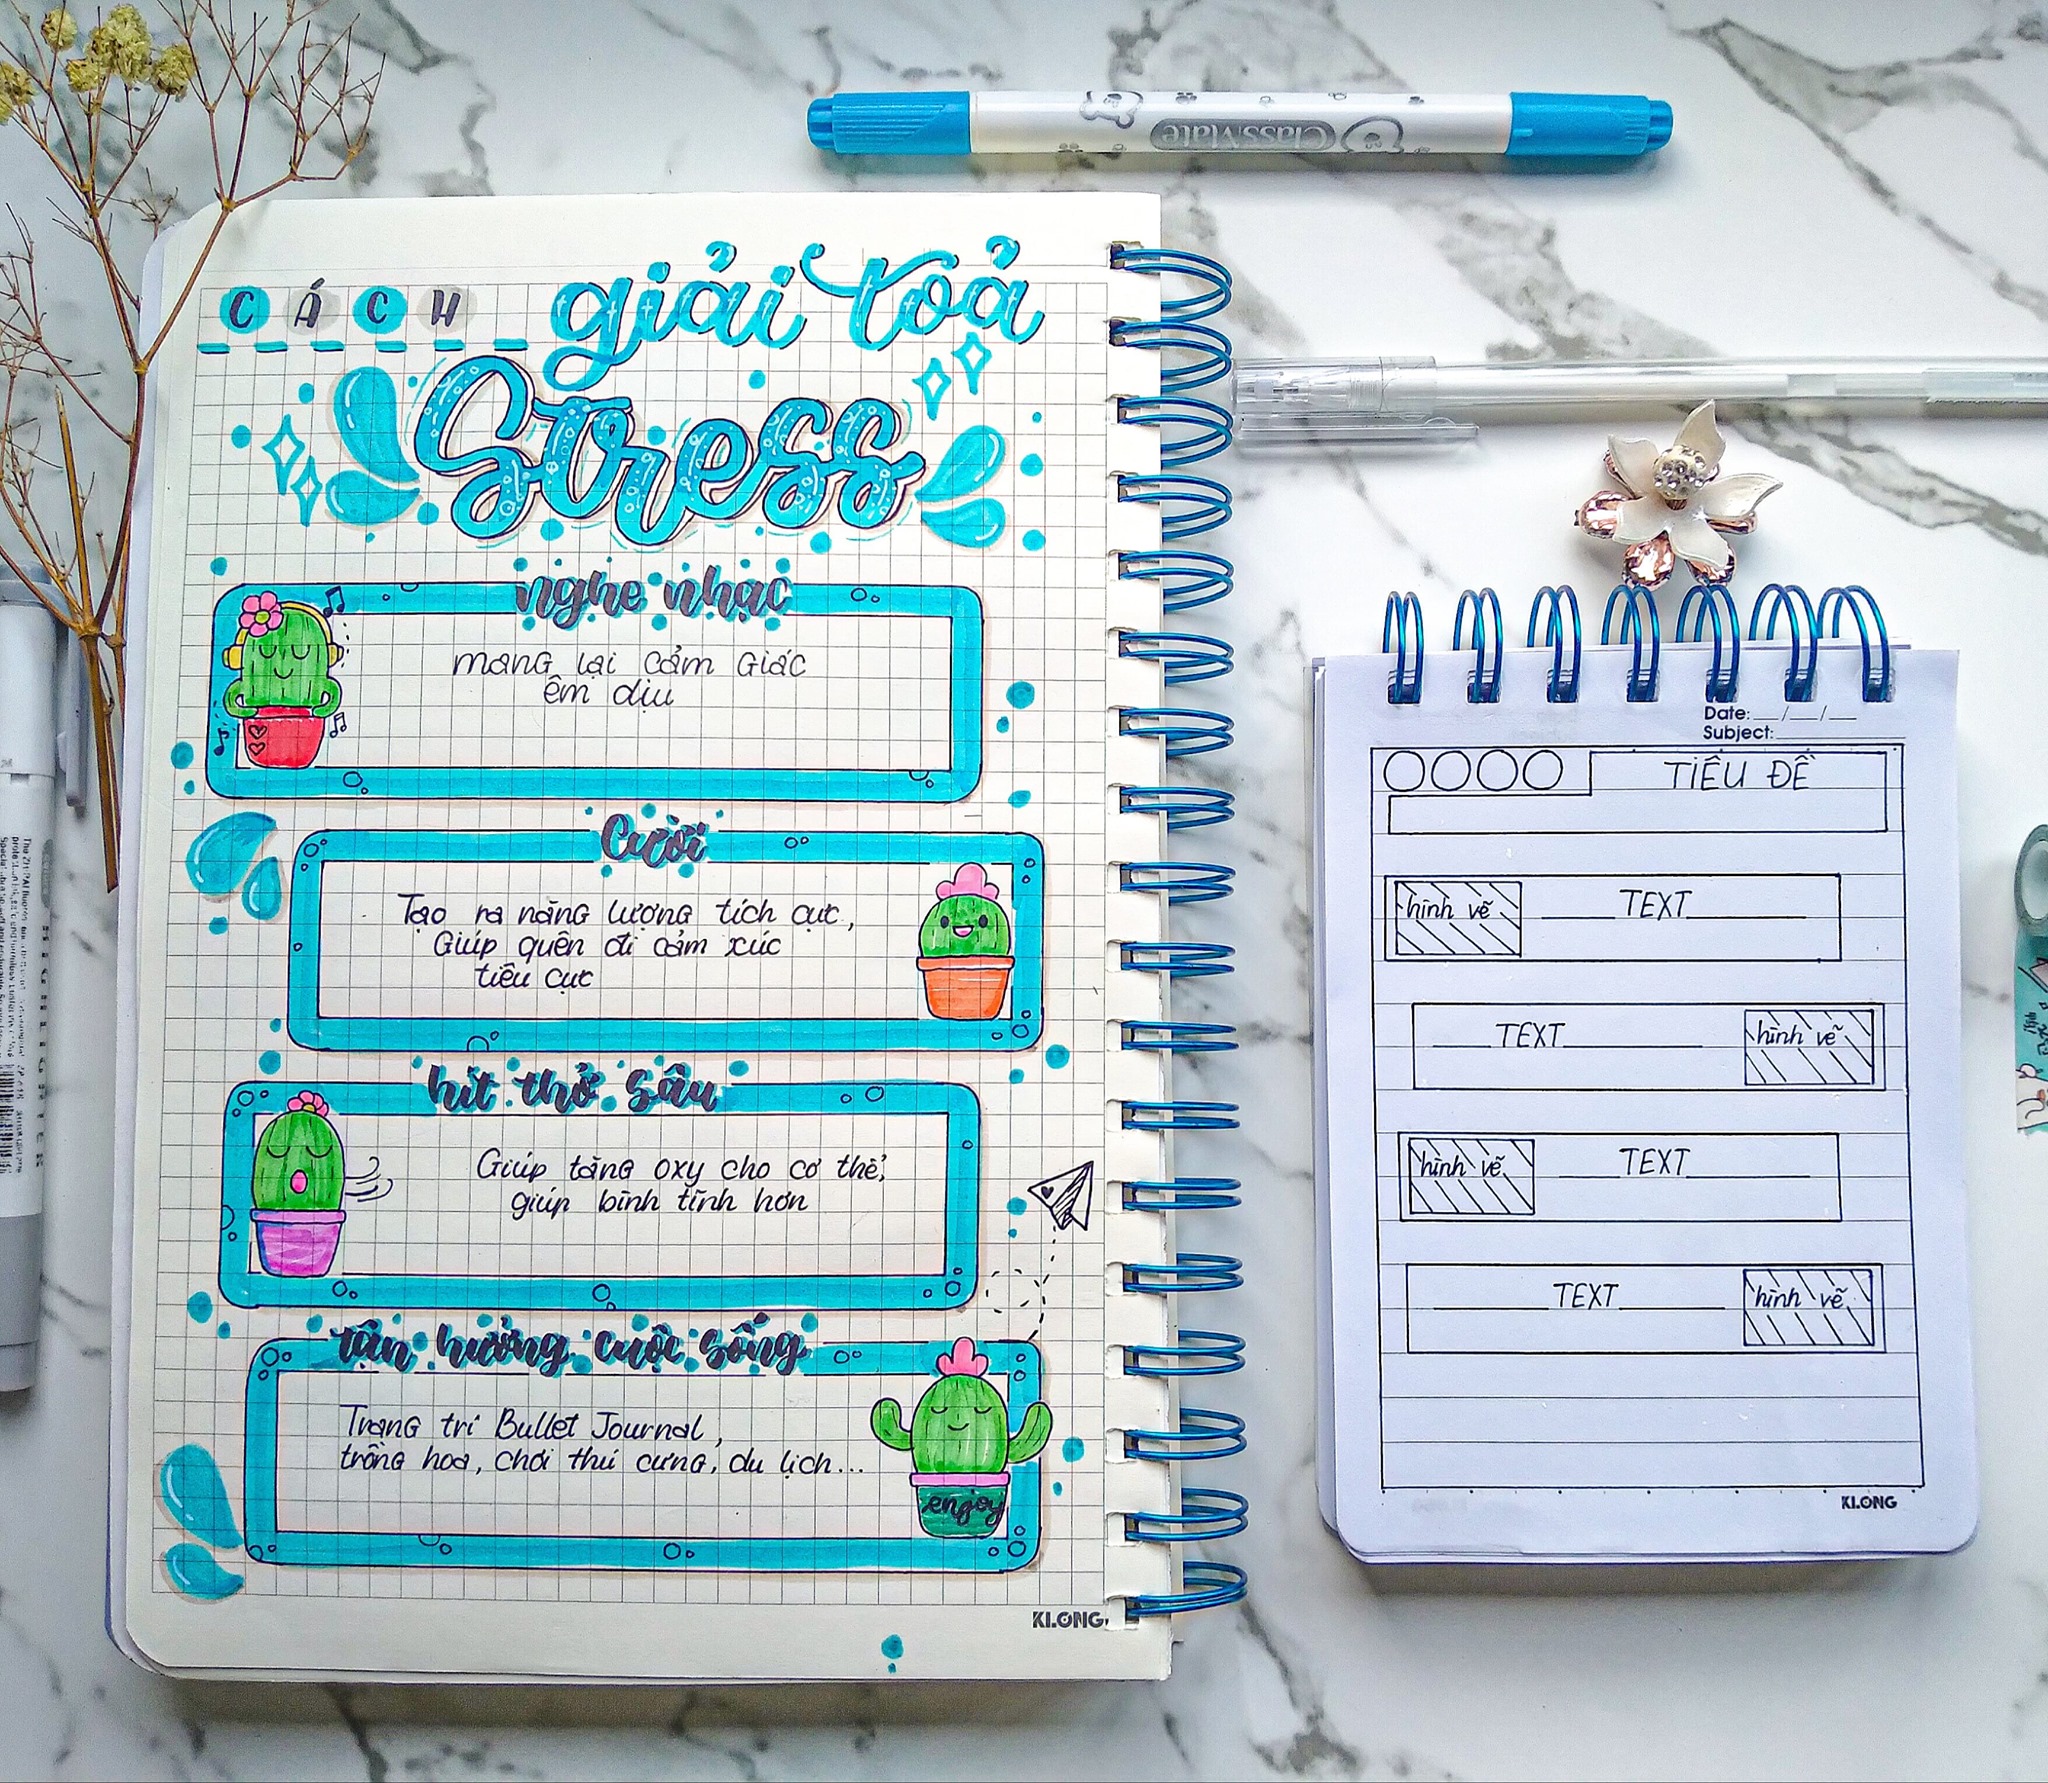 CÁCH giải toả
Stress
nghe nhạc
mang lại cảm giác
êm dịu
Cười
Tạo ra năng lượng tích cực,
Giúp quên đi cảm xúc
tiêu cực
hít thở sâu
Giúp tăng oxy cho cơ thể,
giúp bình tĩnh hơn
tận hưởng cuộc sống
Trang trí Bullet Journal,
trồng hoa, chơi thú cưng, du lịch...
enjoy
KLONG
ClassMate
Date: __/__/__
Subject:
TIÊU ĐỀ
hình vẽ TEXT
TEXT hình vẽ
hình vẽ TEXT
TEXT hình vẽ
KLONG